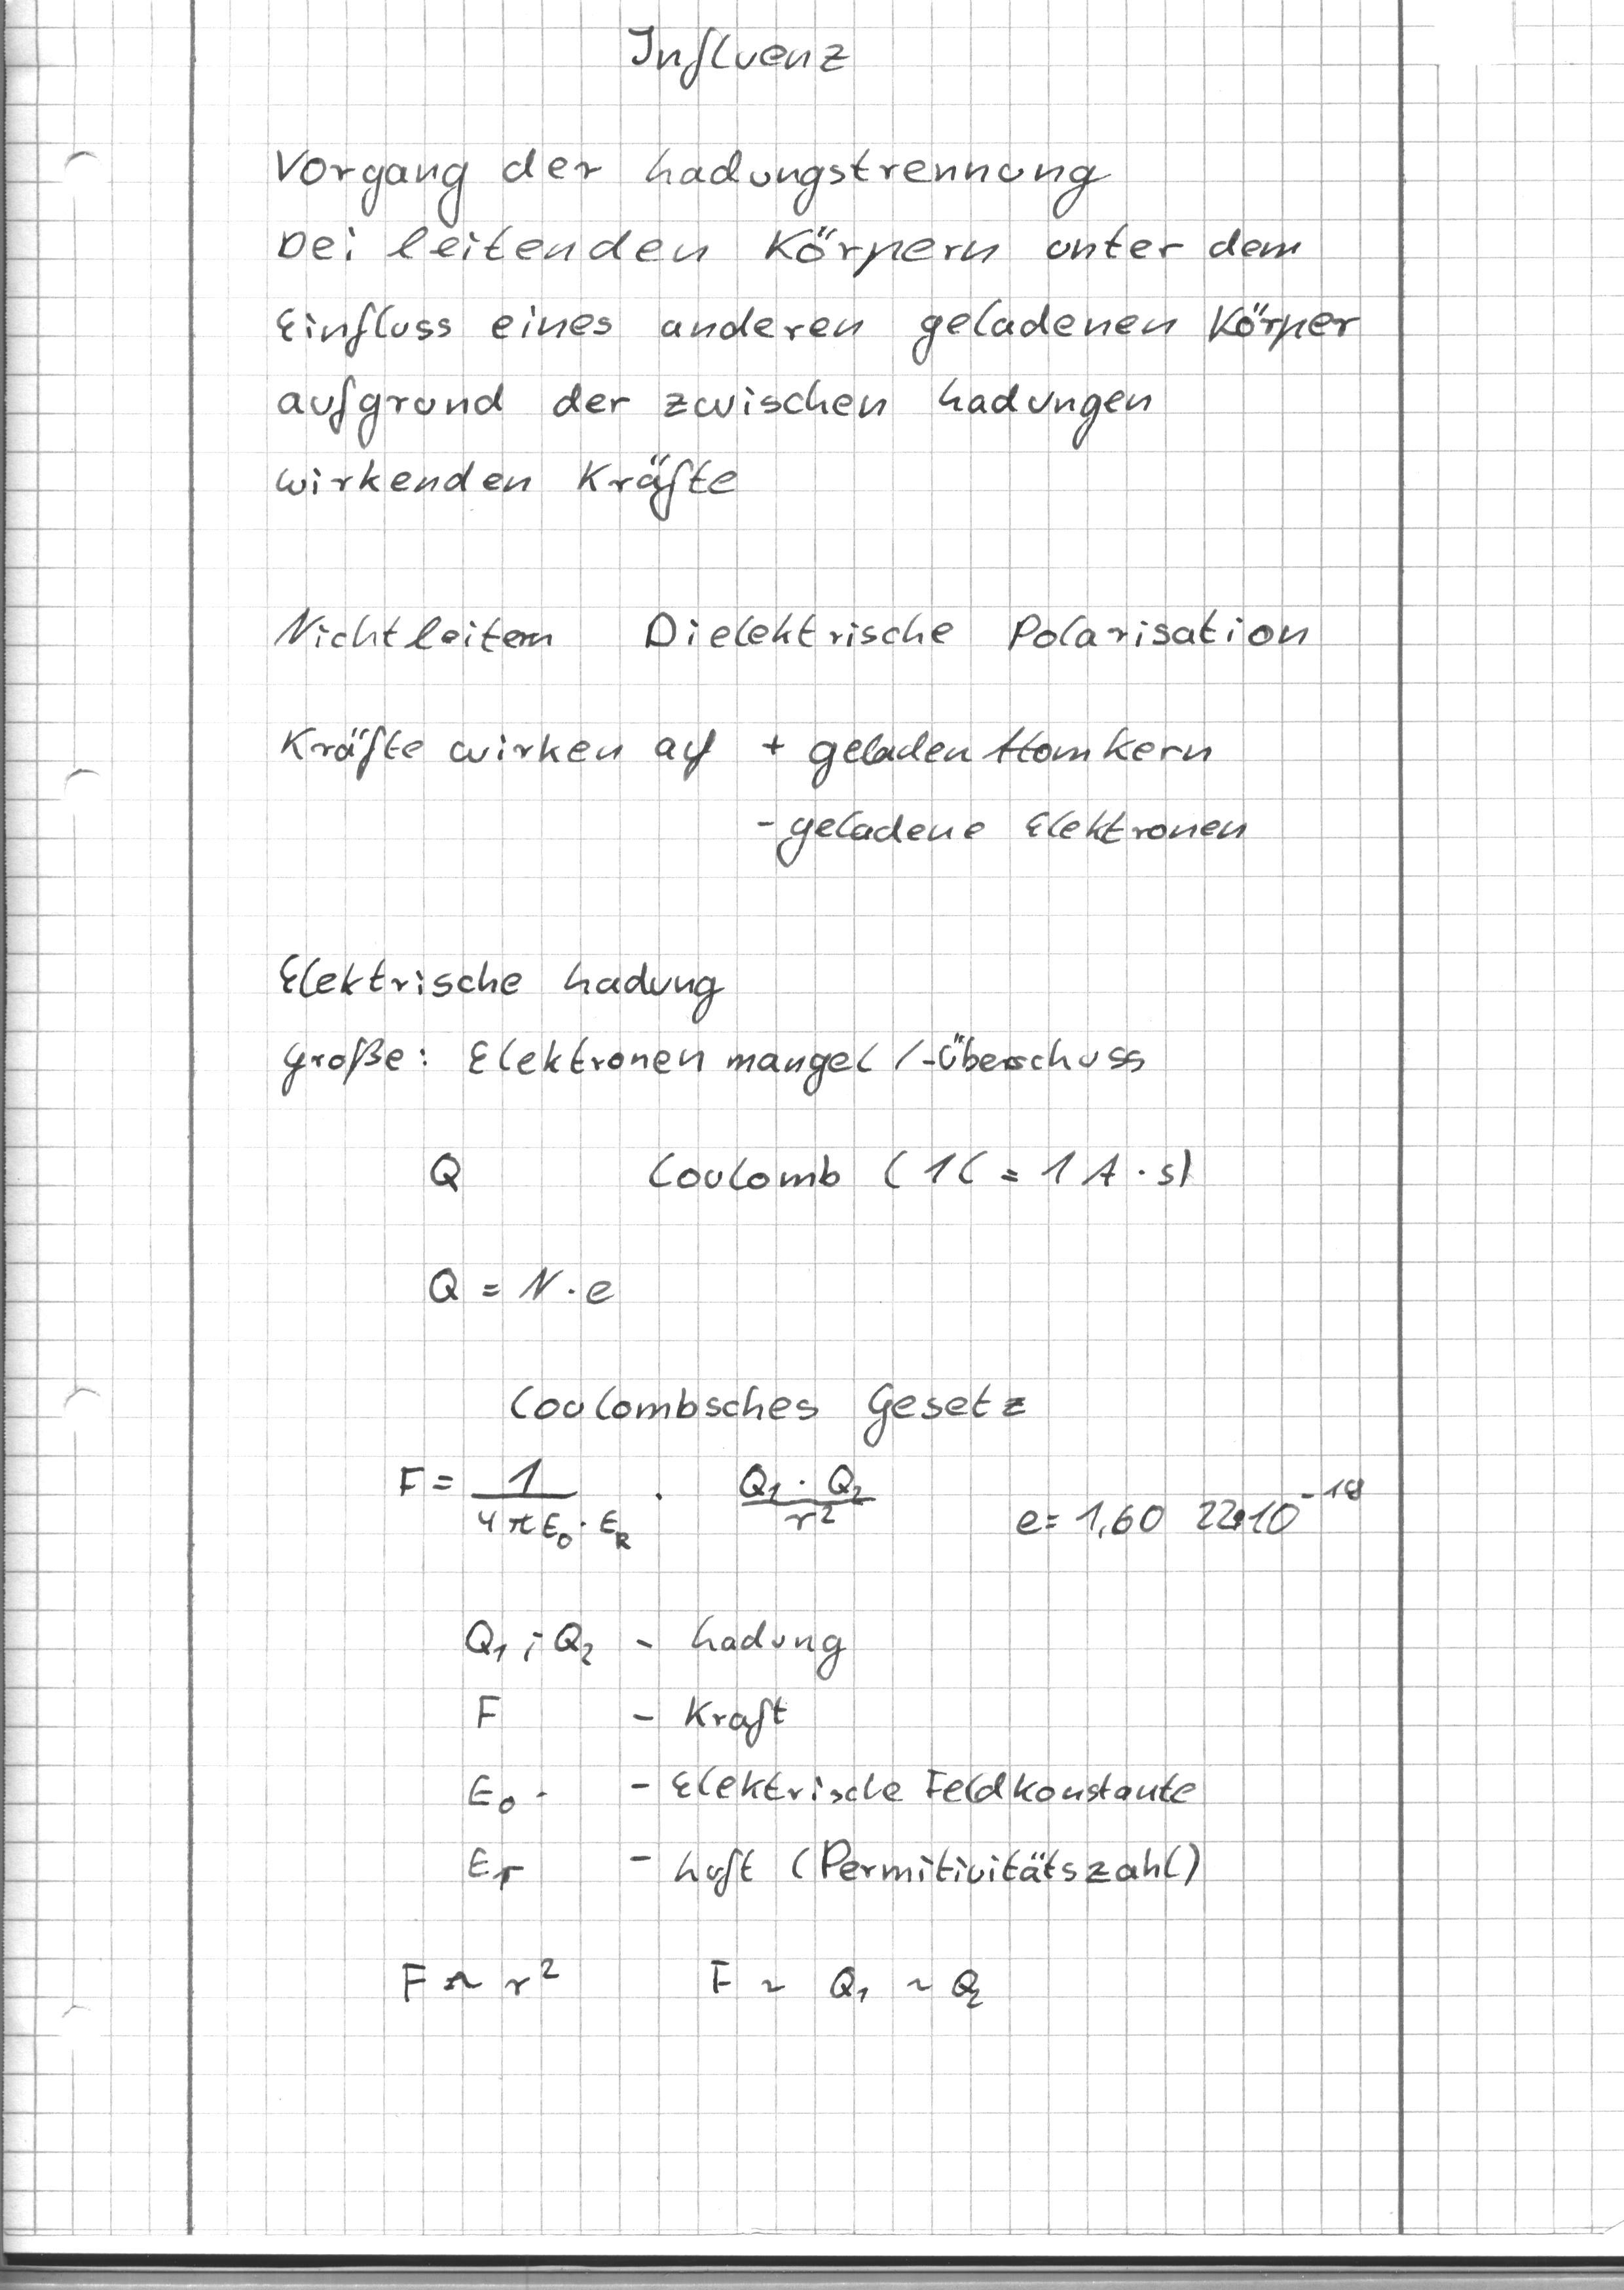 Influenz
Vorgang der Ladungstrennung
bei leitenden Körpern unter dem
Einfluss eines anderen geladenen Körper
aufgrund der zwischen Ladungen
wirkenden Kräfte
Nichtleitern Dielektrische Polarisation
Kräfte wirken auf + geladen Atomkern
- geladene Elektronen
Elektrische Ladung
Größe: Elektronenmangel /-Überschuss
Q Coulomb (1C = 1 A · s)
Q = N · e
Coulombsches Gesetz
F = 1/(4 π E₀ · E_R) · (Q₁ · Q₂)/r² e = 1,60 22·10
Q₁ ; Q₂ - Ladung
F - Kraft
E₀ - Elektrische Feldkonstante
Eᵣ - Luft (Permitivitätszahl)
F ~ r² F ~ Q₁ ~ Q₂